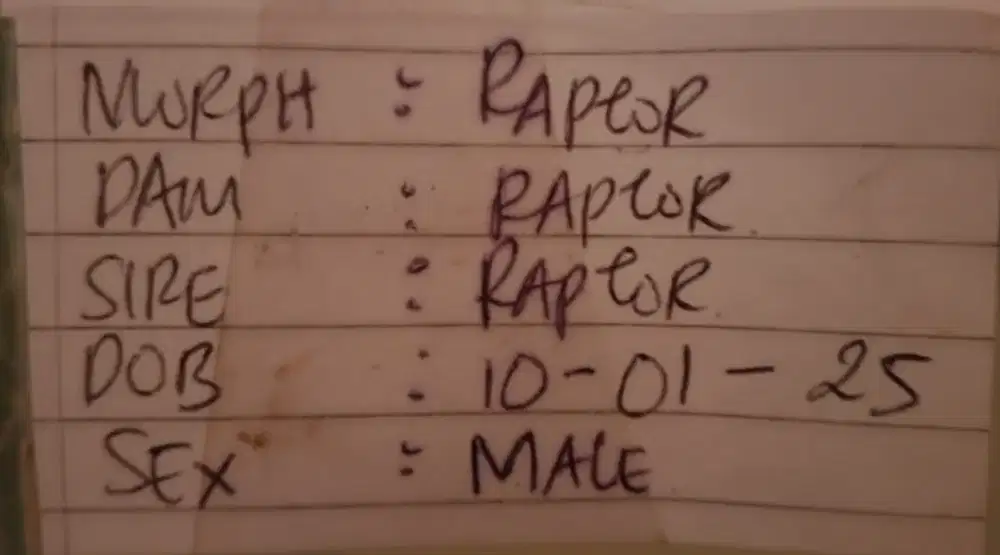 MORPH : RAPtoR
DAM : RAPtoR.
SIRE : RAPtoR.
DOB : 10-01-25
SEX : MALE